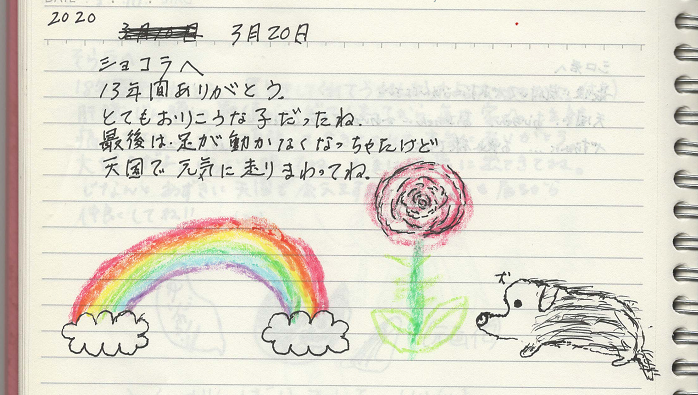 2020
3月20日
ショコラへ
13年間ありがとう。
とてもおりこうな子だったね。
最後は足が動かなくなっちゃたけど
天国で元気に走りまわってね。
犬